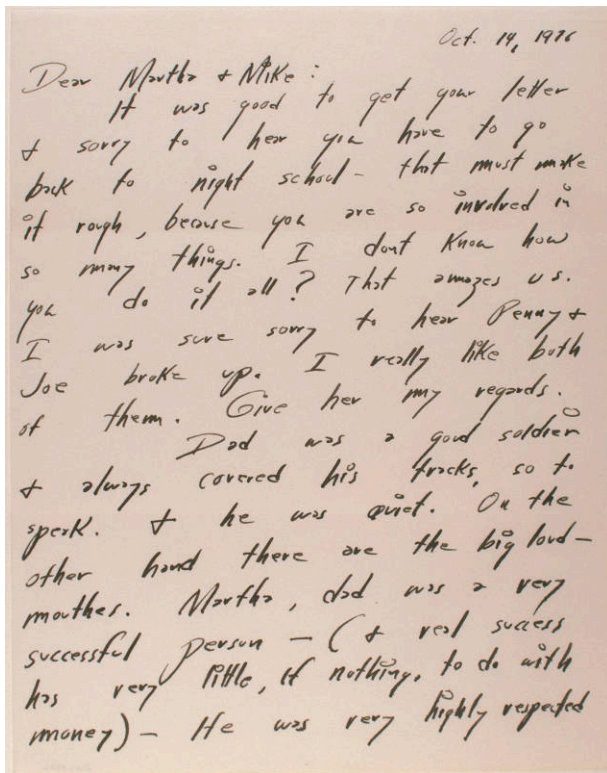 Oct. 14, 1976
Dear Martha & Mike :
It was good to get your letter
& sorry to hear you have to go
back to night school - that must make
it rough, because you are so involved in
so many things. I dont know how
you do it all? That amazes us.
I was sure sorry to hear Penny &
Joe broke up. I really like both
of them. Give her my regards.
Dad was a good soldier
& always covered his tracks, so to
speak. & he was quiet. On the
other hand there are the big loud-
mouthes. Martha, dad was a very
successful person - (& real success
has very little, if nothing, to do with
money) - He was very highly respected